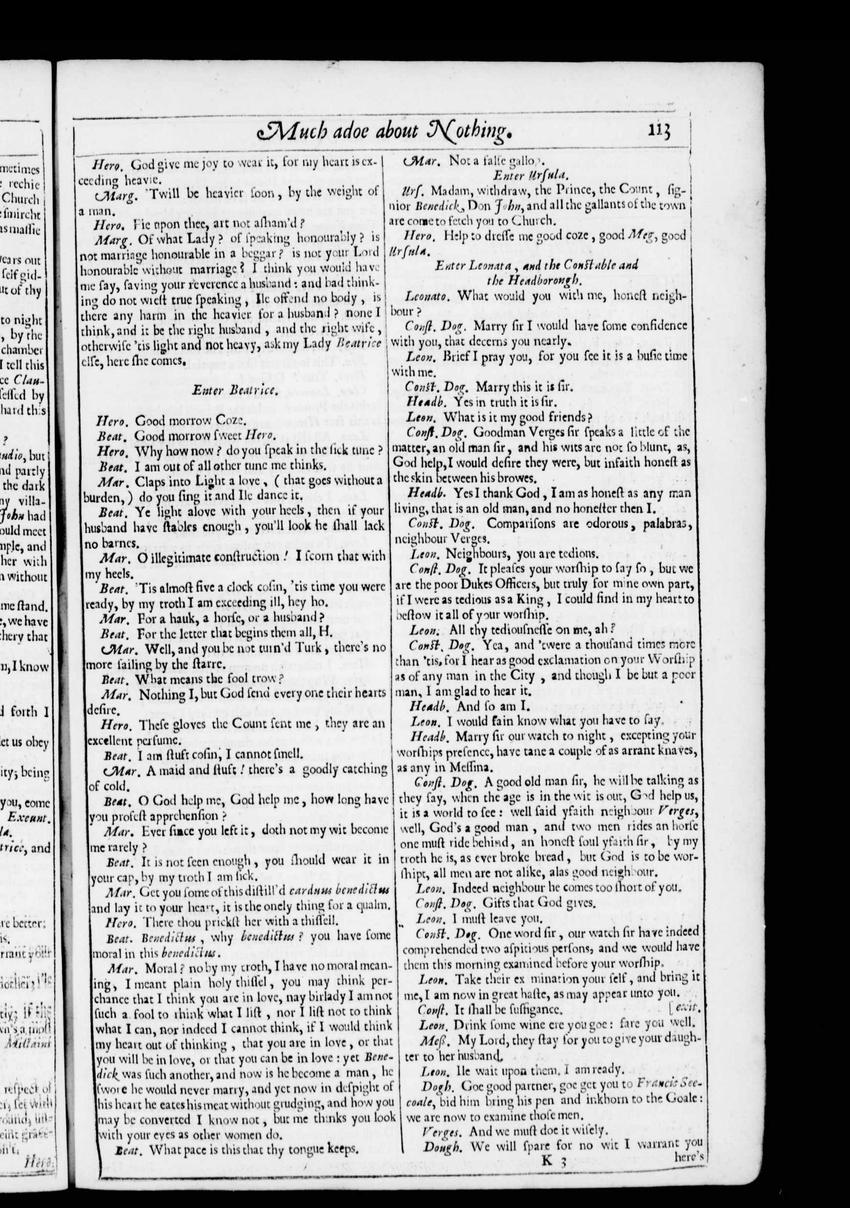 Much adoe about Nothing.
113
metimes
e rechie
Church
smircht
as massie
ears out
self gid-
ut of thy
to night
, by the
chamber
I tell this
ce Clau-
fessed by
hard this
?
udio, but
nd partly
the dark
ny villa-
John had
ould meet
mple, and
her with
n without
me stand.
e, we have
chery that
n, I know
d forth I
let us obey
ity; being
you, come
Exeunt.
la.
trice, and
re better;
is.
respect of
Hero.
Hero. God give me joy to wear it, for my heart is ex-
ceeding heavie.
Marg. 'Twill be heavier soon, by the weight of
a man.
Hero. Fie upon thee, art not asham'd?
Marg. Of what Lady? of speaking honourably? is
not marriage honourable in a beggar? is not your Lord
honourable without marriage? I think you would have
me say, saving your reverence a husband: and bad think-
ing do not wiest true speaking, Ile offend no body, is
there any harm in the heavier for a husband? none I
think, and it be the right husband, and the right wife,
otherwise 'tis light and not heavy, ask my Lady Beatrice
else, here she comes.
Enter Beatrice.
Hero. Good morrow Coze.
Beat. Good morrow sweet Hero.
Hero. Why how now? do you speak in the sick tune?
Beat. I am out of all other tune me thinks.
Mar. Claps into Light a love, (that goes without a
burden,) do you sing it and Ile dance it.
Beat. Ye light alove with your heels, then if your
husband have stables enough, you'll look he shall lack
no barnes.
Mar. O illegitimate construction! I scorn that with
my heels.
Beat. 'Tis almost five a clock cosin, 'tis time you were
ready, by my troth I am exceeding ill, hey ho.
Mar. For a hauk, a horse, or a husband?
Beat. For the letter that begins them all, H.
Mar. Well, and you be not turn'd Turk, there's no
more sailing by the starre.
Beat. What means the fool trow?
Mar. Nothing I, but God send every one their hearts
desire.
Hero. These gloves the Count sent me, they are an
excellent perfume.
Beat. I am stuft cosin, I cannot smell.
Mar. A maid and stuft! there's a goodly catching
of cold.
Beat. O God help me, God help me, how long have
you profest apprehension?
Mar. Ever since you left it, doth not my wit become
me rarely?
Beat. It is not seen enough, you should wear it in
your cap, by my troth I am sick.
Mar. Get you some of this distill'd carduus benedictus
and lay it to your heart, it is the onely thing for a qualm.
Hero. There thou prickst her with a thissell.
Beat. Benedictus, why benedictus? you have some
moral in this benedictus.
Mar. Moral? no by my troth, I have no moral mean-
ing, I meant plain holy thissel, you may think per-
chance that I think you are in love, nay birlady I am not
such a fool to think what I list, nor I list not to think
what I can, nor indeed I cannot think, if I would think
my heart out of thinking, that you are in love, or that
you will be in love, or that you can be in love: yet Bene-
dick was such another, and now is he become a man, he
swore he would never marry, and yet now in despight of
his heart he eates his meat without grudging, and how you
may be converted I know not, but me thinks you look
with your eyes as other women do.
Beat. What pace is this that thy tongue keeps.
Mar. Not a false gallop.
Enter Ursula.
Urs. Madam, withdraw, the Prince, the Count, sig-
nior Benedick, Don John, and all the gallants of the town
are come to fetch you to Church.
Hero. Help to dresse me good coze, good Meg, good
Ursula.
Enter Leonata, and the Constable and
the Headborough.
Leonato. What would you with me, honest neigh-
bour?
Const. Dog. Marry sir I would have some confidence
with you, that decerns you nearly.
Leon. Brief I pray you, for you see it is a busie time
with me.
Const. Dog. Marry this it is sir.
Headb. Yes in truth it is sir.
Leon. What is it my good friends?
Const. Dog. Goodman Verges sir speaks a little of the
matter, an old man sir, and his wits are not so blunt, as,
God help, I would desire they were, but infaith honest as
the skin between his browes.
Headb. Yes I thank God, I am as honest as any man
living, that is an old man, and no honester then I.
Const. Dog. Comparisons are odorous, palabras,
neighbour Verges.
Leon. Neighbours, you are tedions.
Const. Dog. It pleases your worship to say so, but we
are the poor Dukes Officers, but truly for mine own part,
if I were as tedious as a King, I could find in my heart to
bestow it all of your worship.
Leon. All thy tediousnesse on me, ah?
Const. Dog. Yea, and 'twere a thousand times more
than 'tis, for I hear as good exclamation on your Worship
as of any man in the City, and though I be but a poor
man, I am glad to hear it.
Headb. And so am I.
Leon. I would fain know what you have to say.
Headb. Marry sir our watch to night, excepting your
worships presence, have tane a couple of as arrant knaves,
as any in Messina.
Const. Dog. A good old man sir, he will be talking as
they say, when the age is in the wit is out, God help us,
it is a world to see: well said yfaith neighbour Verges,
well, God's a good man, and two men rides an horse
one must ride behind, an honest soul yfaith sir, by my
troth he is, as ever broke bread, but God is to be wor-
shipt, all men are not alike, alas good neighbour.
Leon. Indeed neighbour he comes too short of you.
Const. Dog. Gifts that God gives.
Leon. I must leave you.
Const. Dog. One word sir, our watch sir have indeed
comprehended two aspitious persons, and we would have
them this morning examined before your worship.
Leon. Take their ex mination your self, and bring it
me, I am now in great haste, as may appear unto you.
Const. It shall be suffigance. [exit.
Leon. Drink some wine ere you goe: fare you well.
Mess. My Lord, they stay for you to give your daugh-
ter to her husband.
Leon. Ile wait upon them, I am ready.
Dogh. Goe good partner, goe get you to Francis See-
coale, bid him bring his pen and inkhorn to the Goale:
we are now to examine those men.
Verges. And we must doe it wisely.
Dough. We will spare for no wit I warrant you
K 3
here's